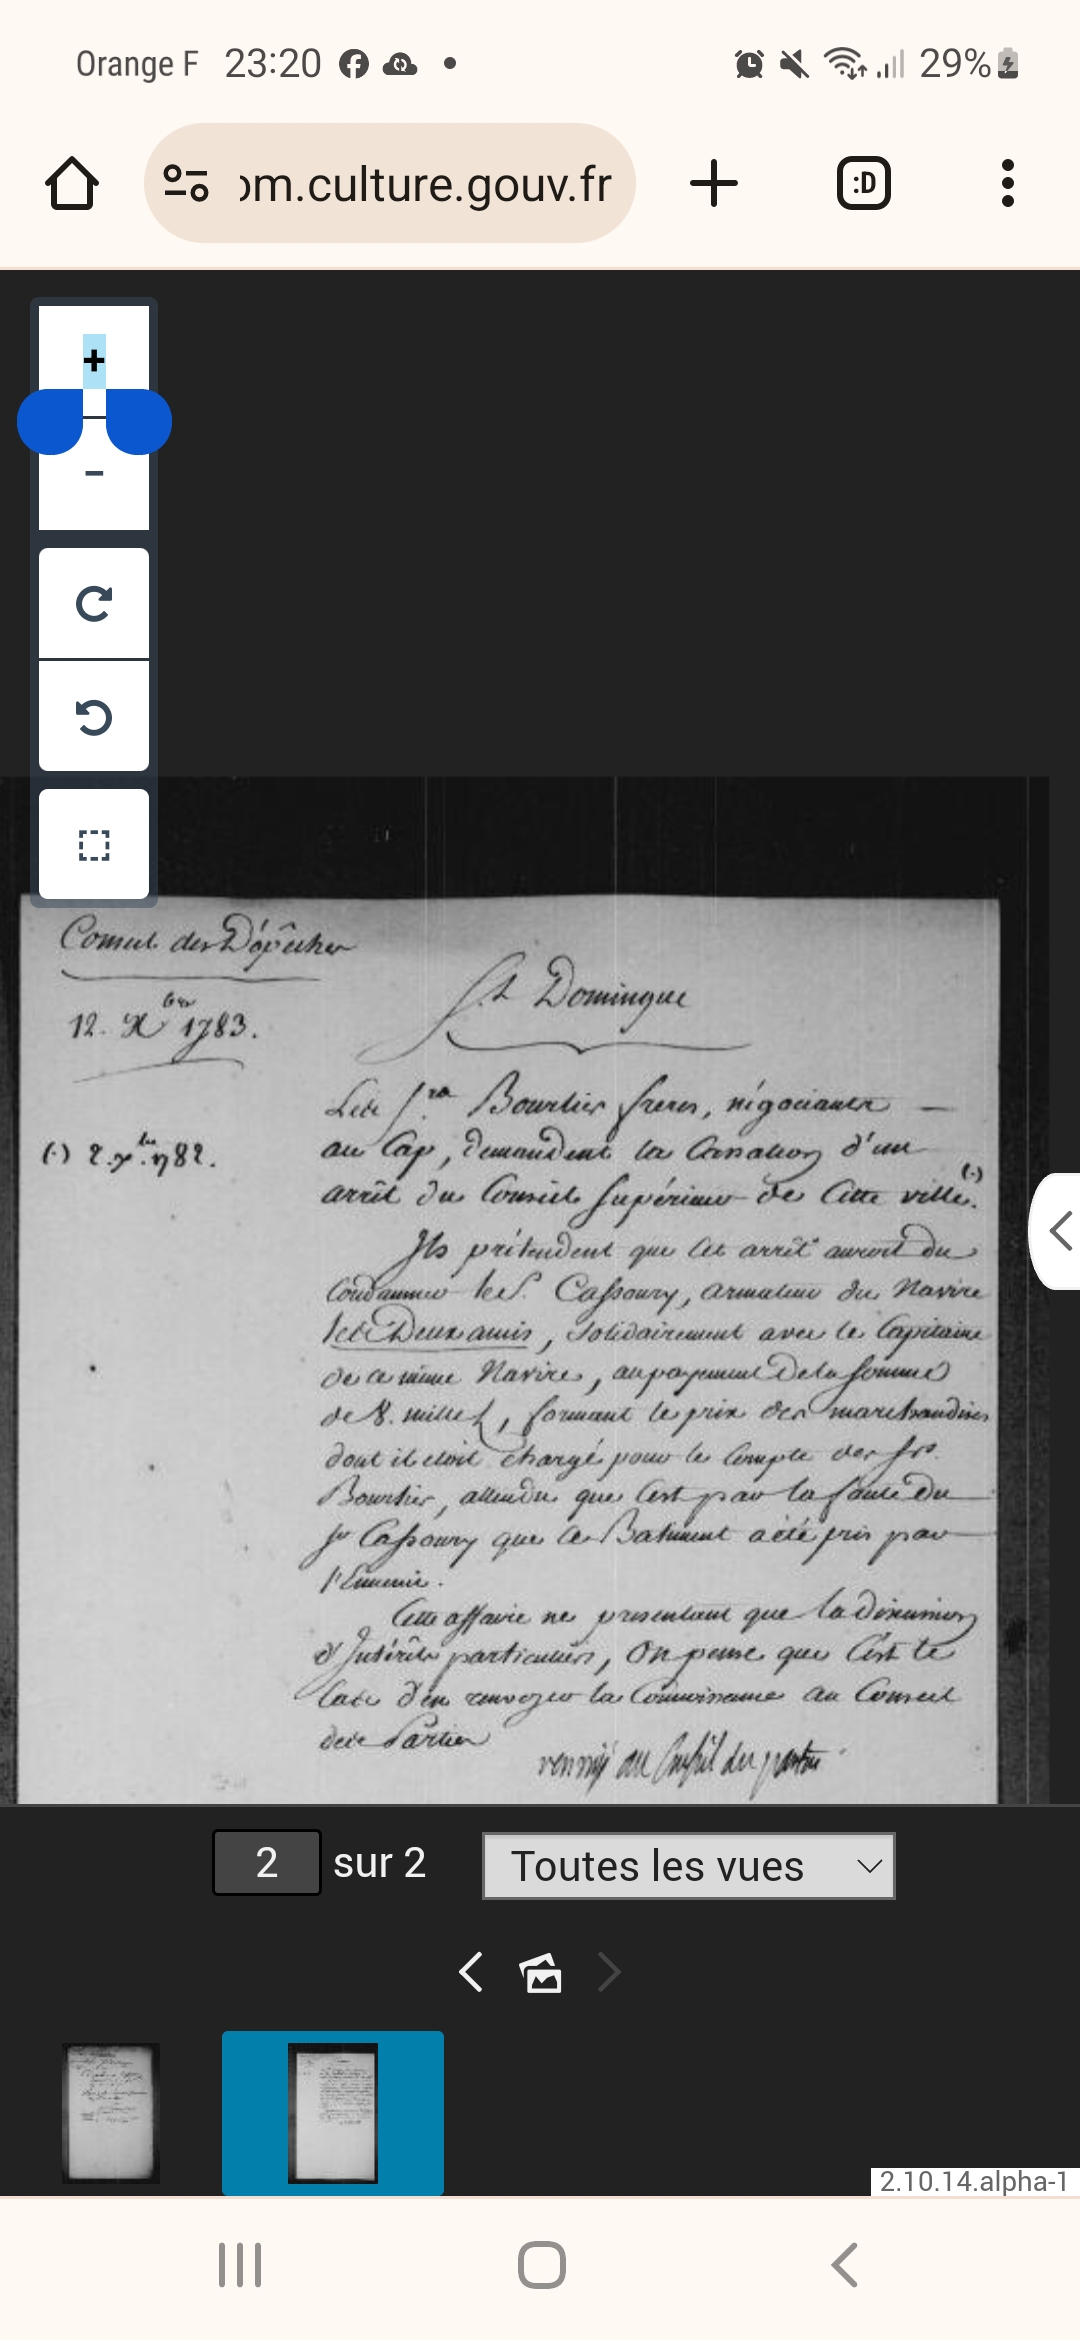 Orange F 23:20 29%
om.culture.gouv.fr
:D
+
-
Conseil des Dépêches
12. Xbre 1783.
St Domingue
Les Srs Bourlier freres, négocians
au Cap, demandent la Cassation d'un
arrêt du Conseil Supérieur de Cette ville (.)
(.) 2. xbre 1782.
Ils prétendent que Cet arrêt auroit du
Condamner le S. Cassoury, armateur du Navire
les Deux amis, Solidairement avec le Capitaine
de ce même Navire, au payement de la Somme
de 8. mille, formant le prix des marchandises
dont il etoit Chargé pour le Compte des Srs.
Bourlier, attendu que C'est par la faute du
Sr Cassoury que le Batiment a été pris par
l'Ennemi.
Cette affaire ne présentant que la discussion
d'Intérêts particuliers, On pense que C'est le
Cas d'en renvoyer la Connoissance au Conseil
des Parties
renvoyé au Conseil des parties
2 sur 2 Toutes les vues
2.10.14.alpha-1